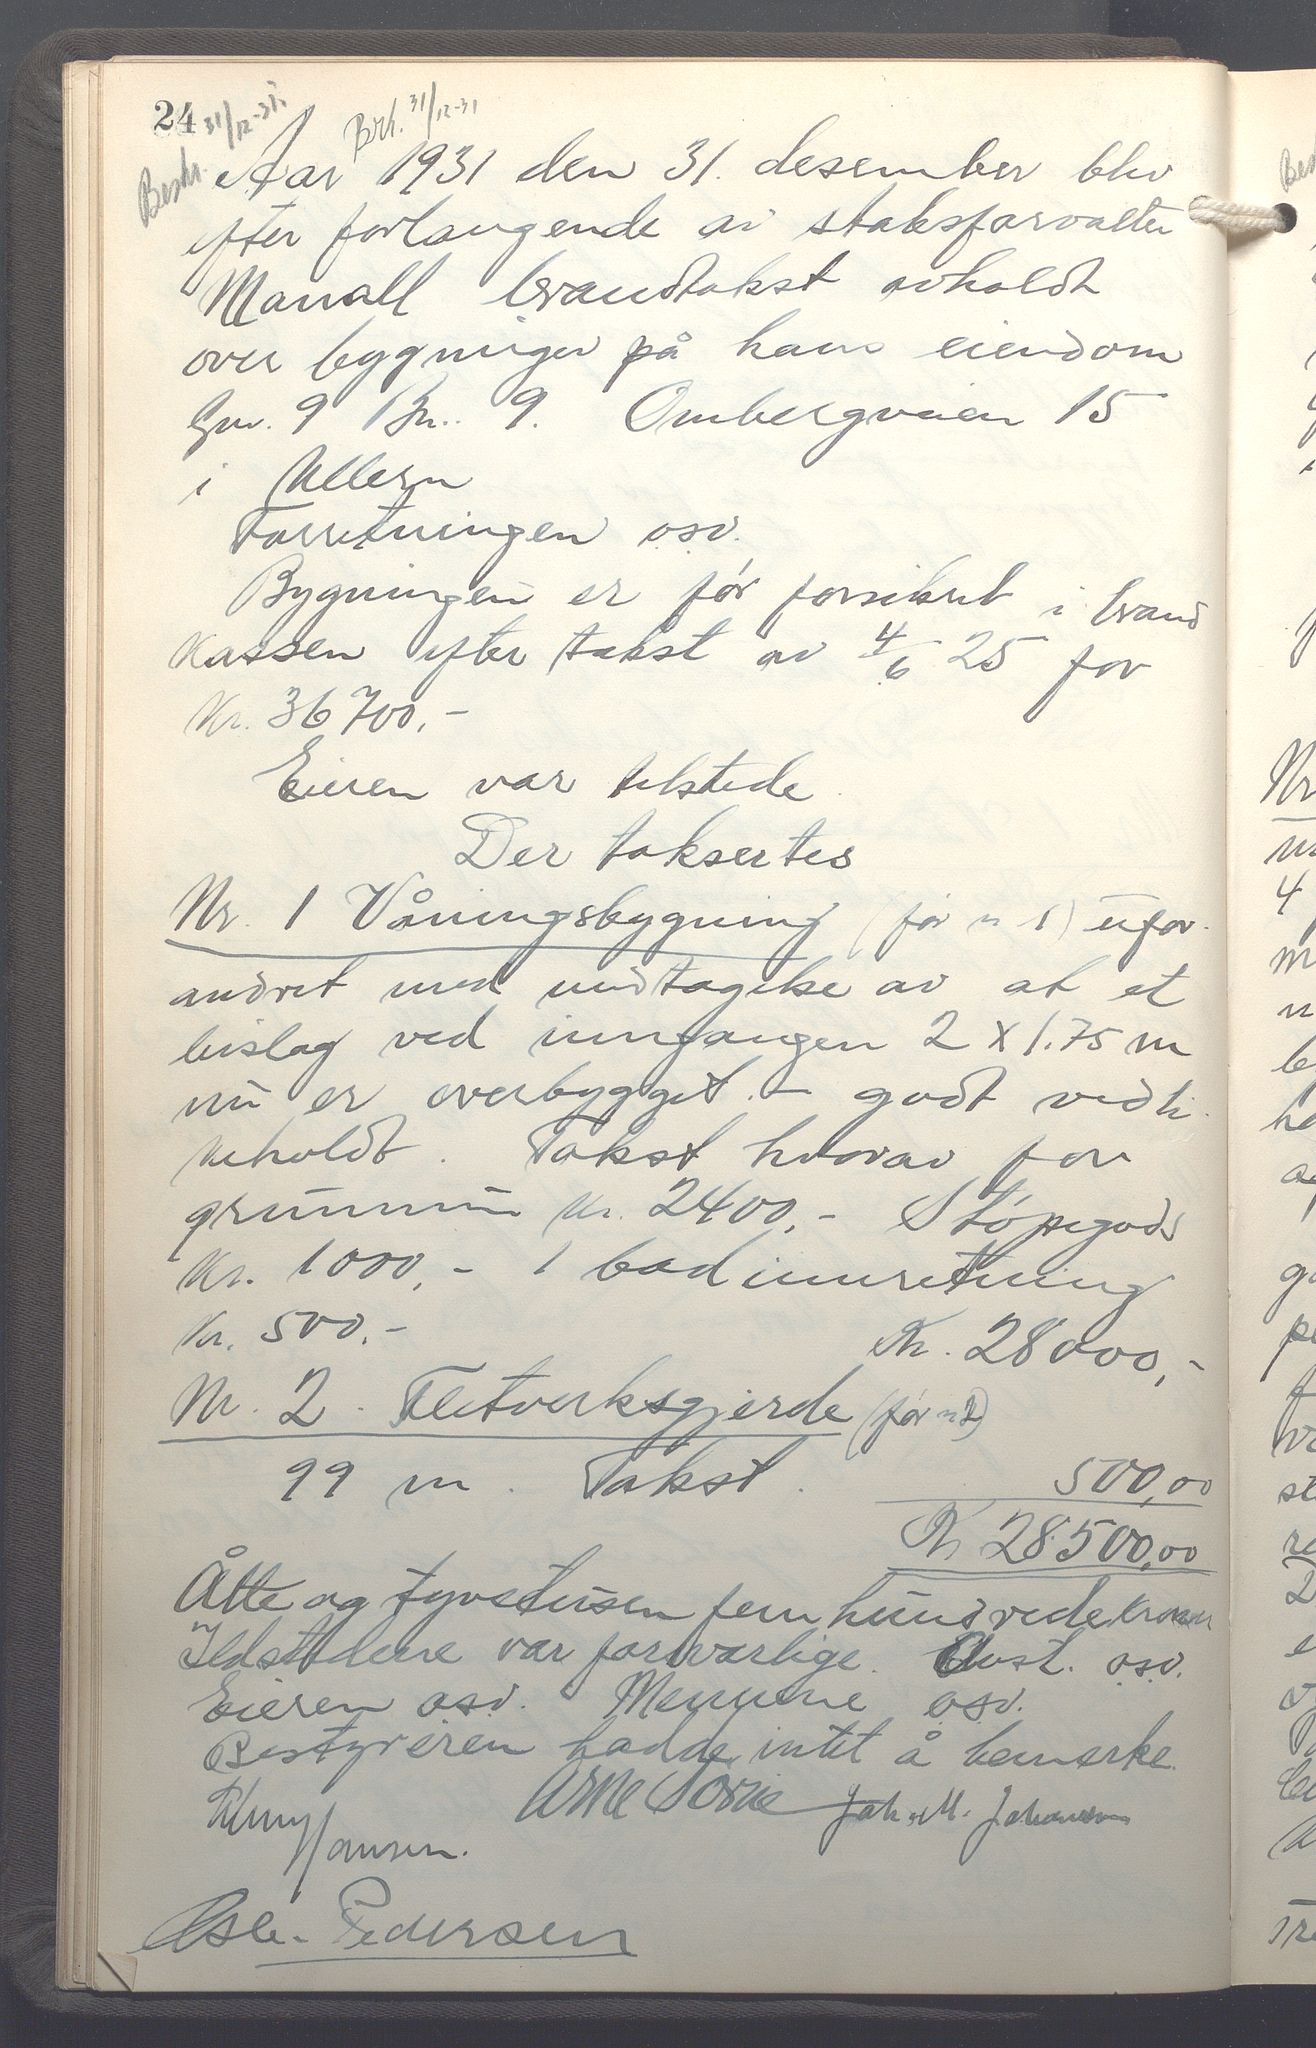 24
Beskr. 31/12-31.
Brk. 31/12-31
Aar 1931 den 31. desember blev
efter forlangende av staksforvalter
brandtakst avholdt
over bygninger på hans eiendom
Gnr. 9 Bn. 9. Ombergveien 15
i Ullern
Forretningen osv.
Bygningen er før forsikret i brand
kassen efter takst av 4/6 25 for
Kr. 36700,-
Eieren var tilstede.
Der taksertes
Nr. 1 Våningsbygning (før nr 1) ufor-
andret med undtagelse av at et
bislag ved inngangen 2 x 1.75 m
nu er overbygget. - godt vedli-
keholdt. Takst hvorav for
grunnmur Kr. 2400,- Støpegods
Kr. 1000,- 1 badinnretning
Kr. 500.- Kr. 28000,-
Nr. 2. Fletverksgjerde (før nr 2)
99 m. Takst. 500,00
Kr 28.500,00
Åtte og tyvetusen fem hundrede kroner
Ildstedene var forsvarlige. Avst. osv.
Eieren osv. Mennene osv.
Bestyreren hadde intet å bemerke.
Arne Joh. M. Johansen
Hansen.
Osc. Pedersen